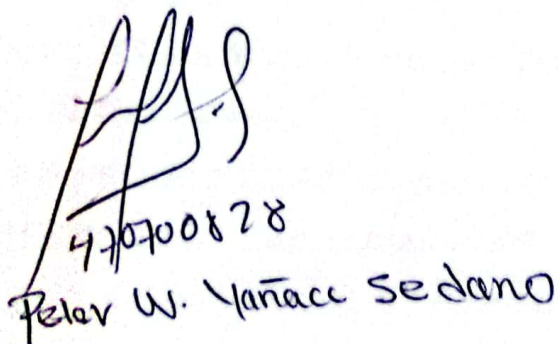 470700828
Peler W. Yañacc Sedano